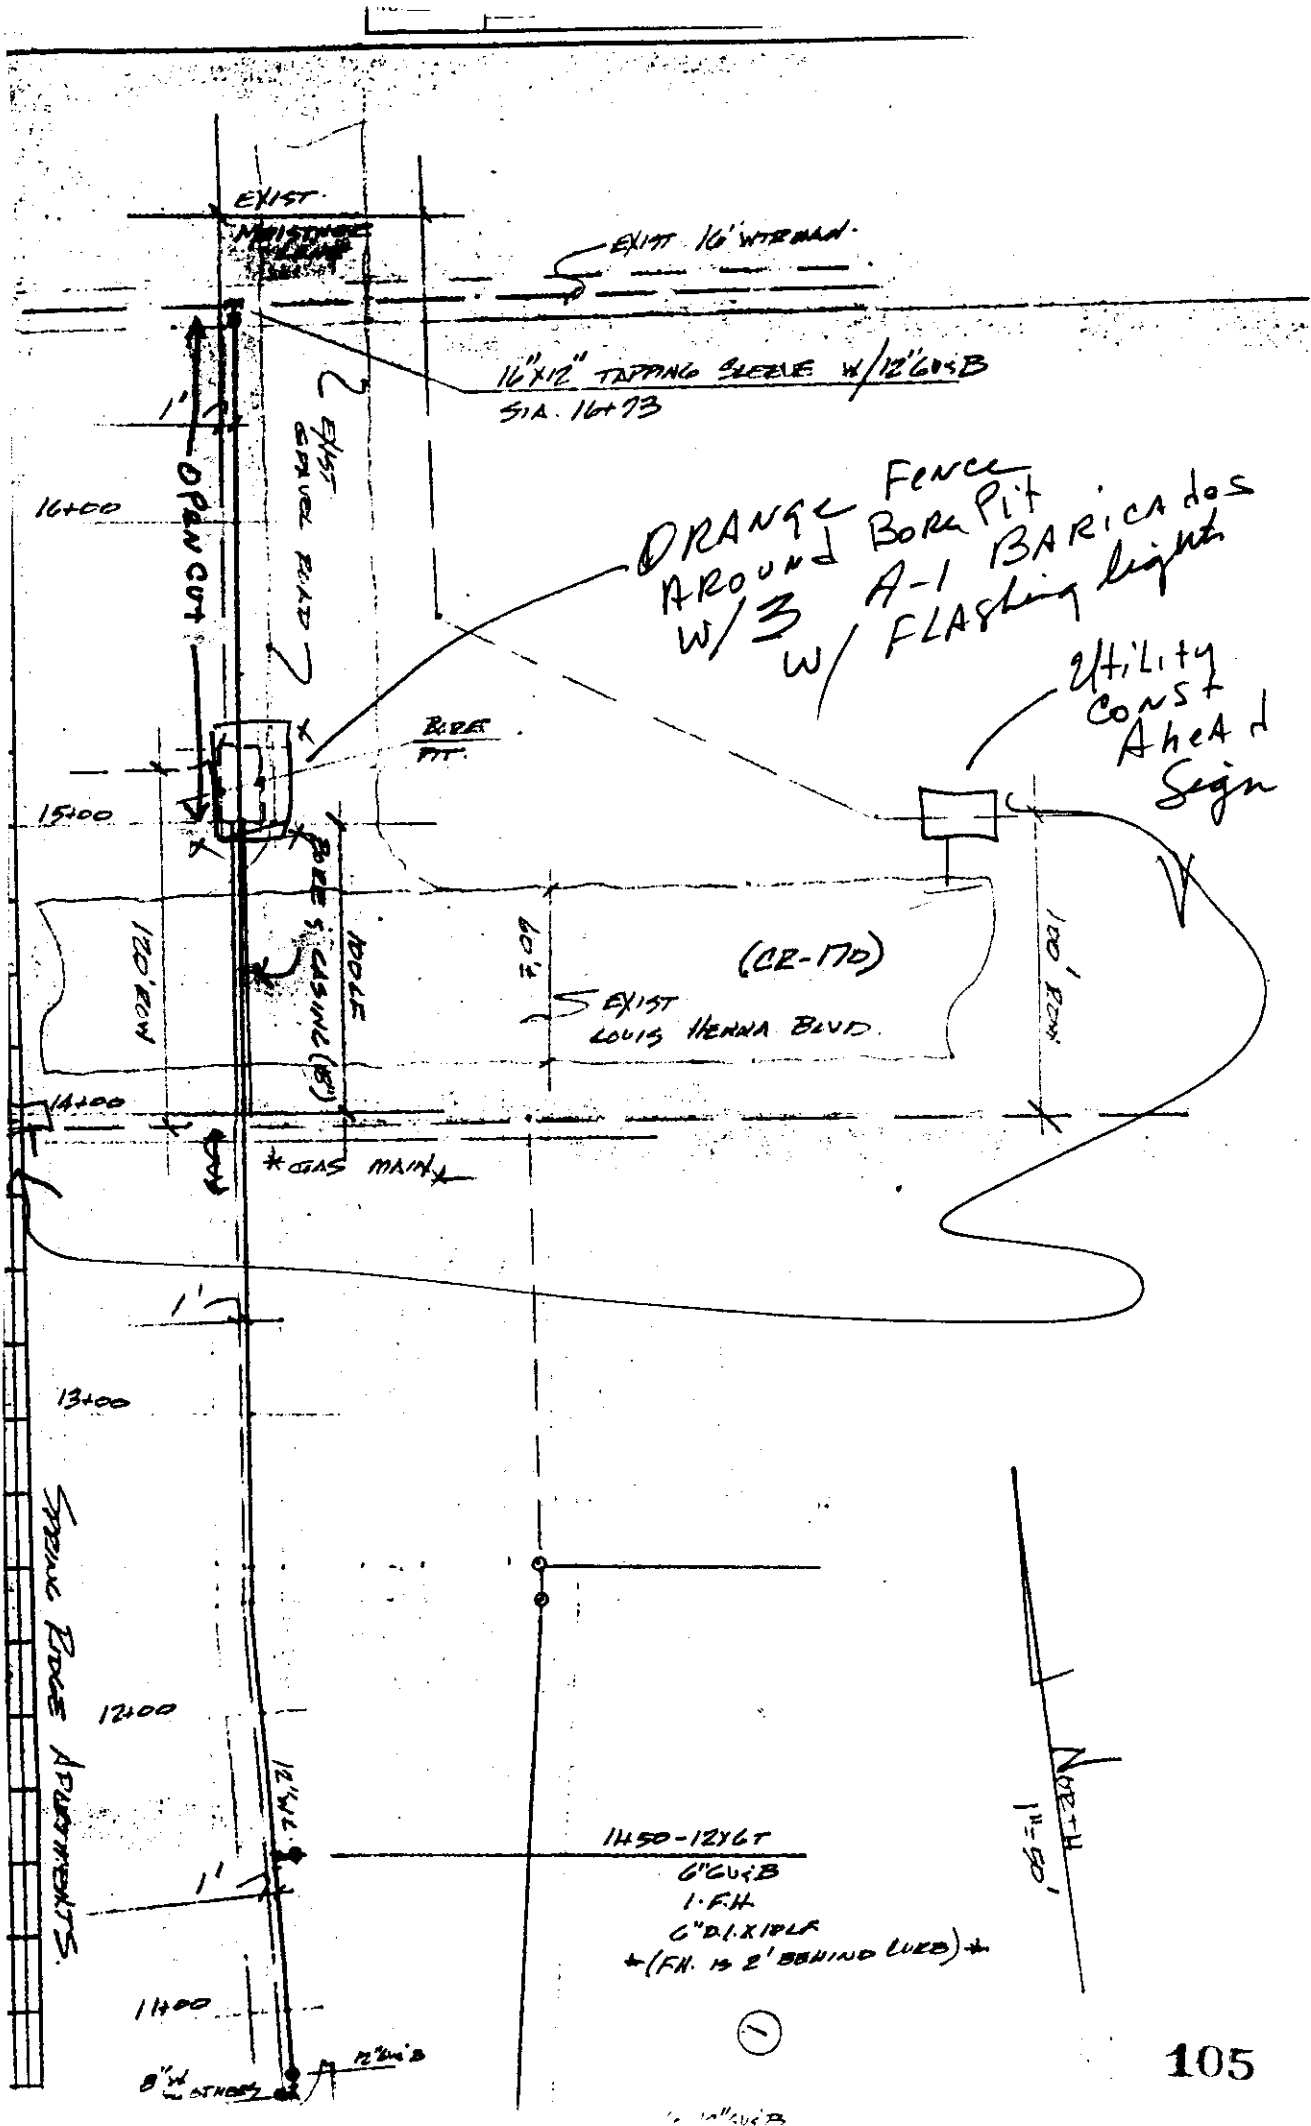 EXIST.
EXIST 16" WTRMAN.
16"X12" TAPPING SLEEVE W/12"GV&B
STA. 16+73
1'
OPEN CUT
EXIST
GRAVEL ROAD
16+00
ORANGE Fence
AROUND BORE Pit
W/3 A-1 BARICAdos
W/ FLAShing lights
Utility
CONST
AheAd
Sign
BORE
PIT.
15+00
BORE & CASING (18")
100LF
120' ROW
60'±
(CR-170)
EXIST
LOUIS HENNA BLVD.
100' ROW
14+00
* GAS MAIN *
1'
13+00
SPRING RIDGE APARTMENTS.
12+00
12"WL.
NORTH
1"=50'
11+50-12X6T
6"GV&B
1-F.H.
6"D.I.X10LF
*(F.H. IS 2' BEHIND CURB)*
1'
11+00
8"W
OTHERS
12"GV&B
1
105